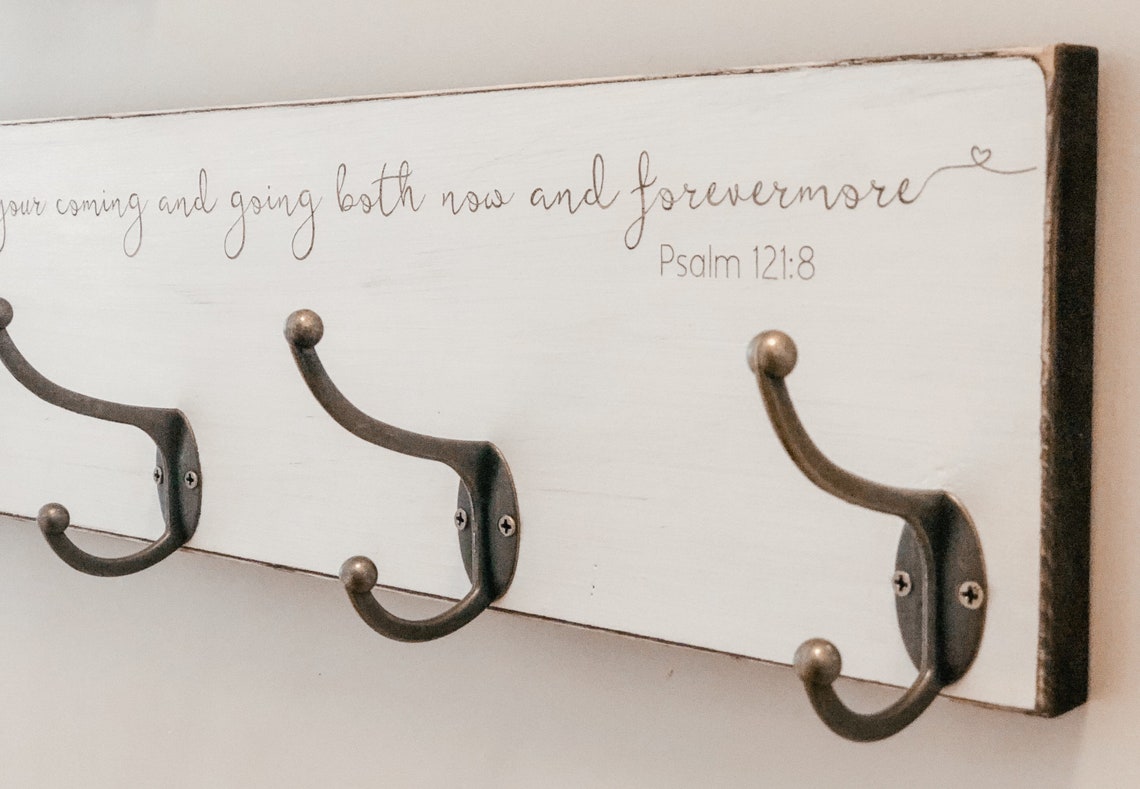 your coming and going both now and forevermore
Psalm 121:8